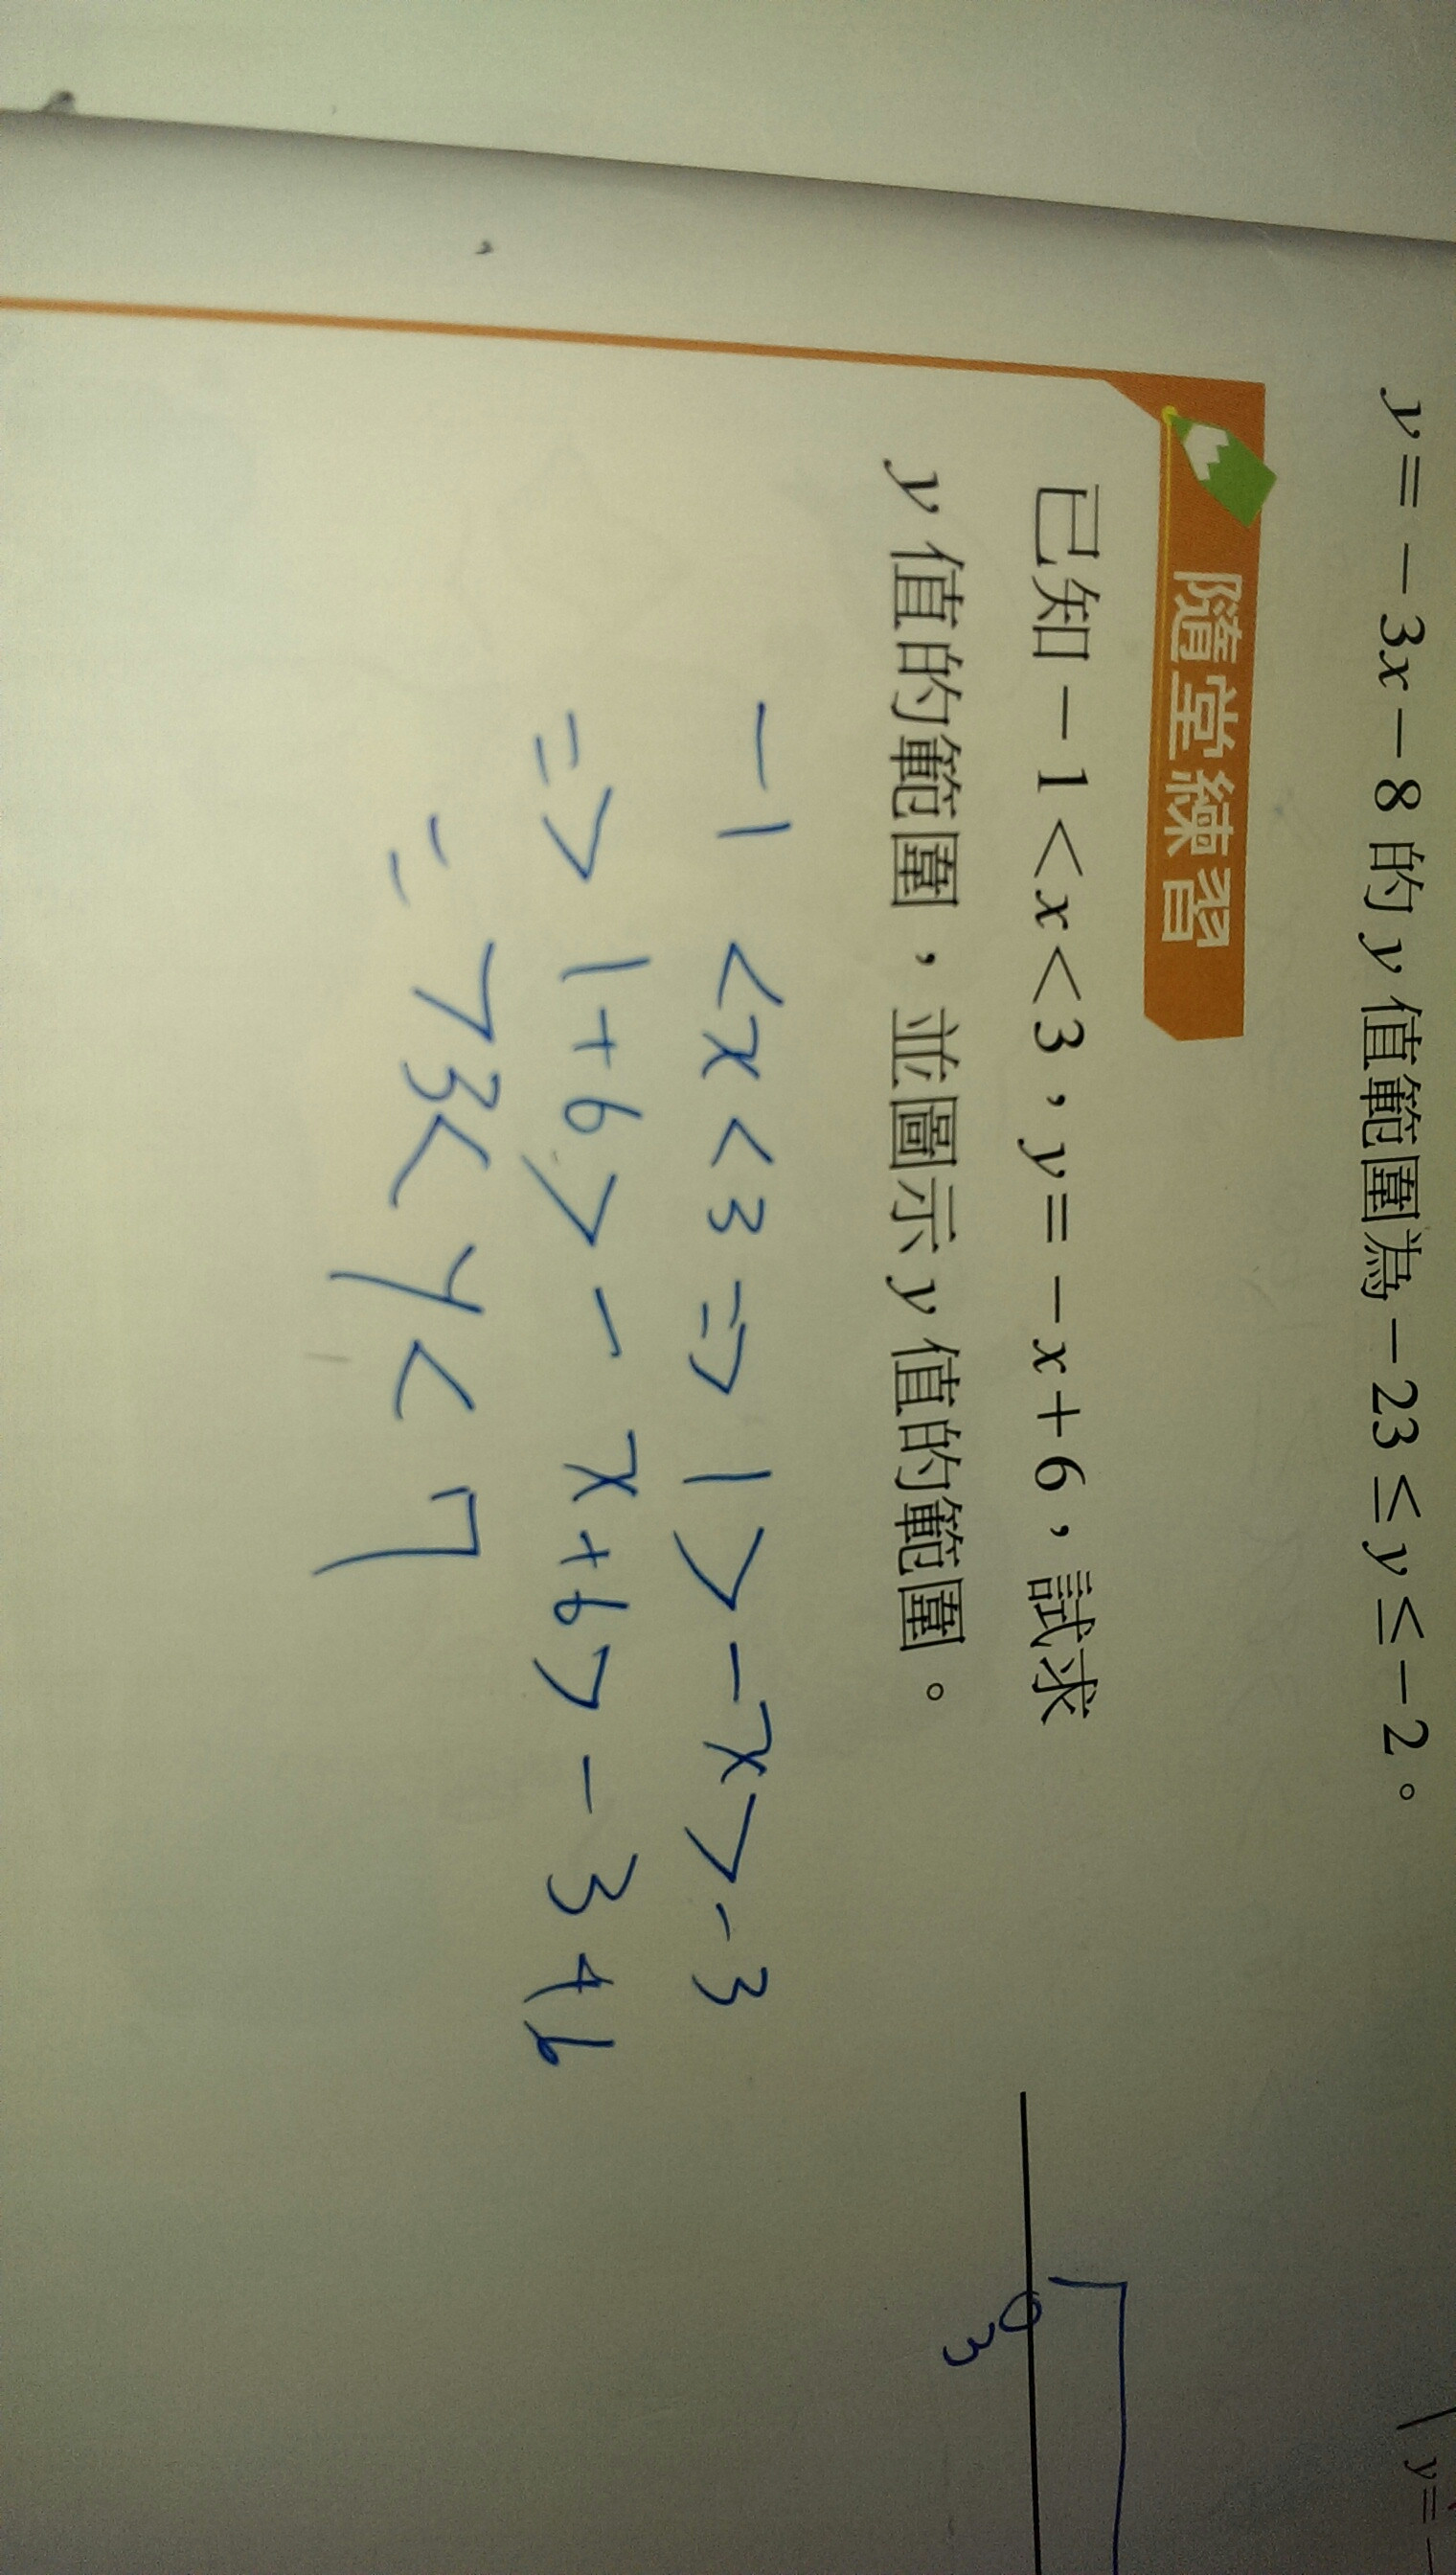 y=－3x－8 的 y 值範圍為－23≤y≤－2。
隨堂練習
已知－1<x<3，y=－x+6，試求
y 值的範圍，並圖示 y 值的範圍。
-1<x<3 => 1>-x>-3
=> 1+6>-x+6>-3+6
=> 3<y<7
3
y=－